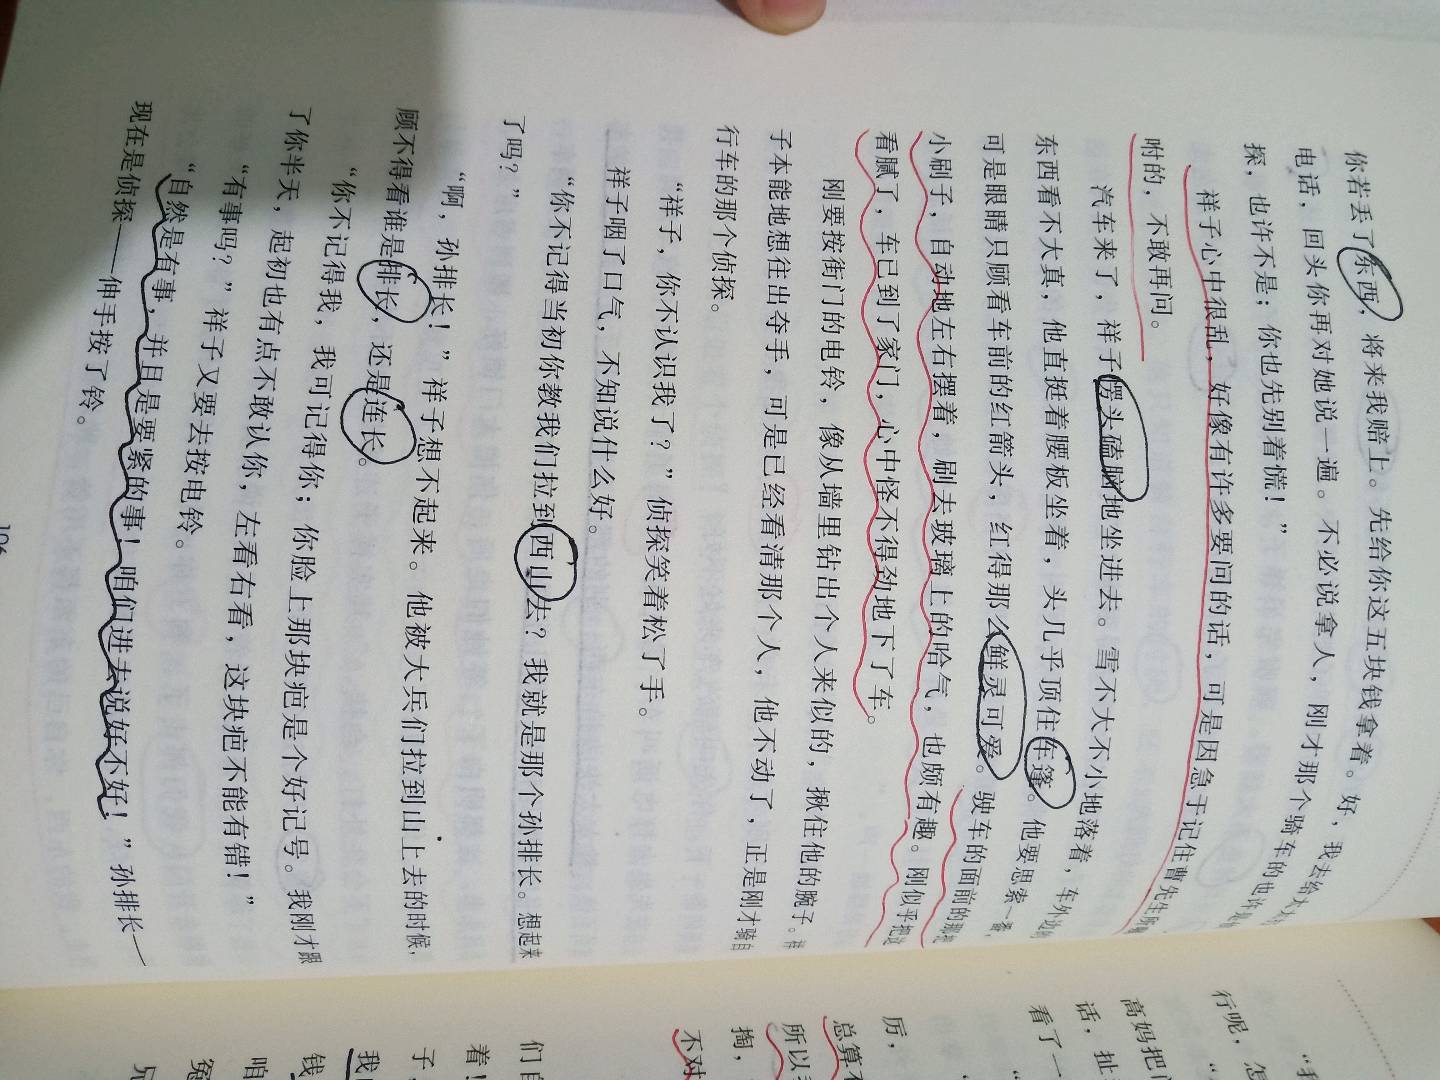 你若丢了东西，将来我赔上。先给你这五块钱拿着。好，我去给太太
电话，回头你再对她说一遍。不必说拿人，刚才那个骑车的也许是
探，也许不是；你也先别着慌！”
祥子心中很乱，好像有许多要问的话，可是因急于记住曹先生所嘱
咐的，不敢再问。
汽车来了，祥子愣头磕脑地坐进去。雪不大不小地落着，车外边的
东西看不大真，他直挺着腰板坐着，头几乎顶住车篷。他要思索一番，
可是眼睛只顾看车前的红箭头，红得那么鲜灵可爱。驶车的面前的那把
小刷子，自动地左右摆着，刷去玻璃上的哈气，也颇有趣。刚似乎把这
看腻了，车已到了家门，心中怪不得劲地下了车。
刚要按街门的电铃，像从墙里钻出个人来似的，揪住他的腕子。祥
子本能地想往出夺手，可是已经看清那个人，他不动了，正是刚才骑自
行车的那个侦探。
“祥子，你不认识我了？”侦探笑着松了手。
祥子咽了口气，不知说什么好。
“你不记得当初你教我们拉到西山去？我就是那个孙排长。想起来
了吗？”
“啊，孙排长！”祥子想不起来。他被大兵们拉到山上去的时候，
顾不得看谁是排长，还是连长。
“你不记得我，我可记得你；你脸上那块疤是个好记号。我刚才跟
了你半天，起初也有点不敢认你，左看右看，这块疤不能有错！”
“有事吗？”祥子又要去按电铃。
“自然是有事，并且是要紧的事！咱们进去说好不好！”孙排长——
现在是侦探——伸手按了铃。
106
“我
行呢，怎
高妈把门
话，扯
看了一
厉，
总算
所以
掏，
不对
们自
着！
子，
我
钱
咱
冤
兄